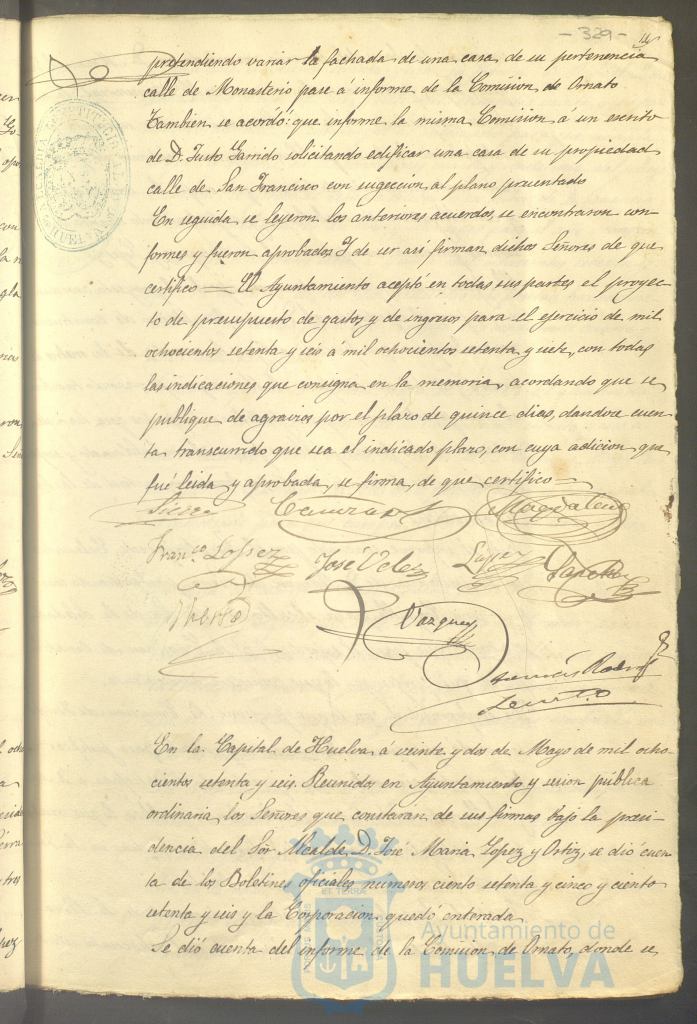 - 329 -
pretendiendo variar la fachada de una casa de su pertenencia
calle de Monasterio pase á informe de la Comision de Ornato
Tambien se acordó: que informe la misma Comision á un escrito
de D. Justo Garrido solicitando edificar una casa de su propiedad
calle de San Francisco con sugeccion al plano presentado
En seguida se leyeron los anteriores acuerdos, se encontraron con-
formes y fueron aprobados Y de ser asi firman dichos Señores de que
certifico = El Ayuntamiento aceptó en todas sus partes el proyec-
to de presupuesto de gastos y de ingresos para el ejercicio de mil
ochocientos setenta y seis á mil ochocientos setenta y siete, con todas
las indicaciones que consigna en la memoria, acordando que se
publique de agravios por el plazo de quince dias, dandose cuen-
ta transcurrido que sea el indicado plazo, con cuya adicion que
fué leida y aprobada, se firma, de que certifico =
Magdaleno
Franco Lopez José Velez Lopez Sanchez
Vazquez
En la Capital de Huelva á veinte y dos de Mayo de mil ocho-
cientos setenta y seis. Reunidos en Ayuntamiento y sesion pública
ordinaria los Señores que constaran de sus firmas bajo la presi-
dencia del Sor Alcalde D. José Maria Lopez y Ortiz, se dió cuen-
ta de los Boletines oficiales numeros ciento setenta y cinco y ciento
setenta y seis y la Corporacion quedó enterada
Se dió cuenta del informe de la Comision de Ornato, donde se
Ayuntamiento de
HUELVA